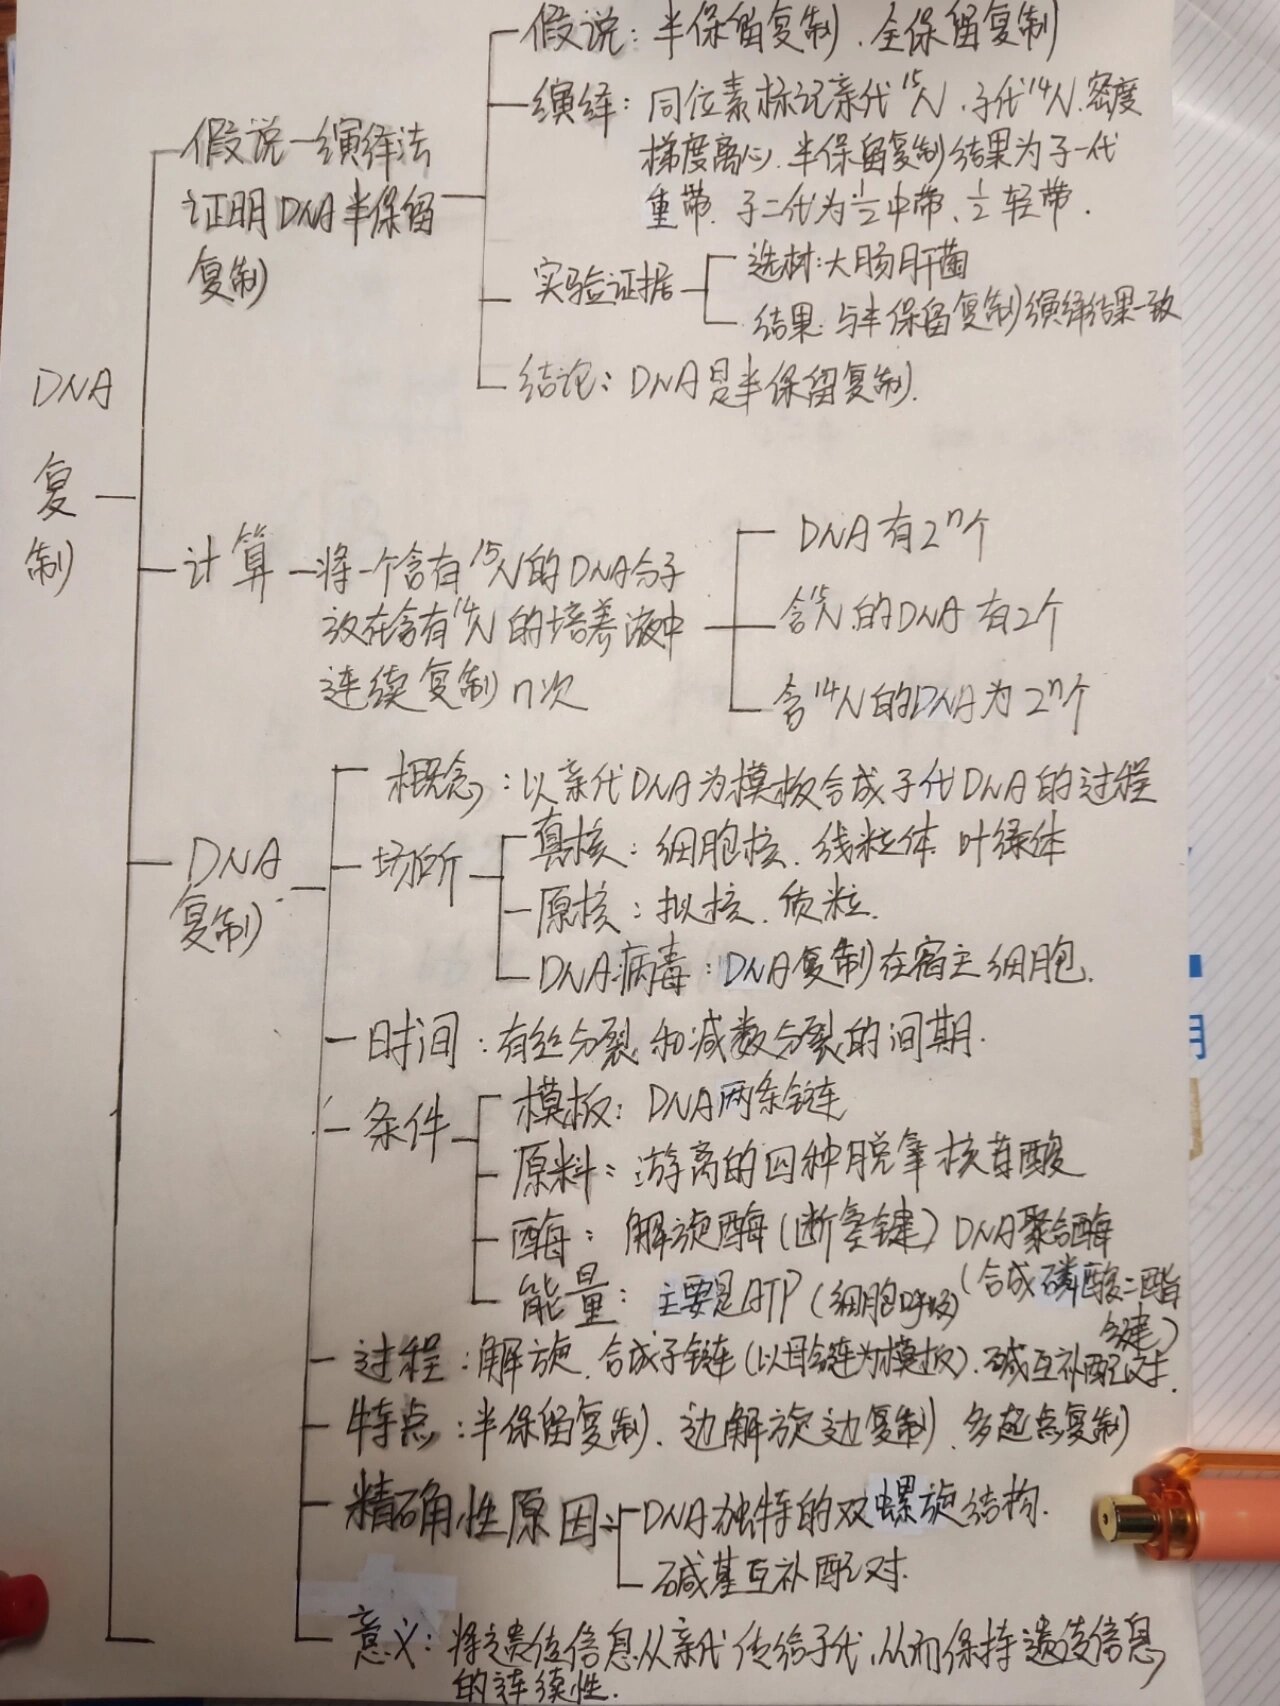 DNA
复
制
假说—演绎法
证明DNA半保留
复制
假说：半保留复制、全保留复制
演绎：同位素标记亲代¹⁵N、子代¹⁴N、密度
梯度离心、半保留复制结果为子一代
重带、子二代为½中带、½轻带.
实验证据
选材：大肠肝菌
结果：与半保留复制演绎结果一致
结论：DNA是半保留复制.
计算—将一个含有¹⁵N的DNA分子
放在含有¹⁴N的培养液中
连续复制n次
DNA有2ⁿ个
含¹⁵N的DNA有2个
含¹⁴N的DNA为2ⁿ个
DNA
复制
概念：以亲代DNA为模板合成子代DNA的过程
场所
真核：细胞核、线粒体 叶绿体
原核：拟核、质粒.
DNA病毒：DNA复制在宿主细胞.
时间：有丝分裂和减数分裂的间期.
条件
模板：DNA两条链
原料：游离的四种脱氧核苷酸
酶：解旋酶（断氢键）DNA聚合酶
（合成磷酸二酯
键）
能量：主要是ATP（细胞呼吸）
过程：解旋、合成子链（以母链为模板）、碱互补配对.
特点：半保留复制、边解旋边复制、多起点复制
精确性原因：
DNA独特的双螺旋结构.
碱基互补配对.
意义：将遗传信息从亲代传给子代，从而保持遗传信息
的连续性.
月